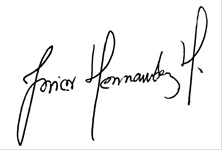 Junior Hernandez H.